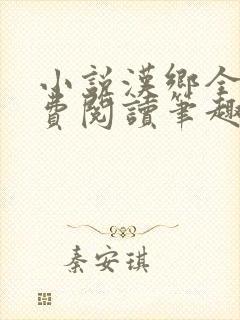 小說漢鄉全
費閱讀筆趣
秦安琪